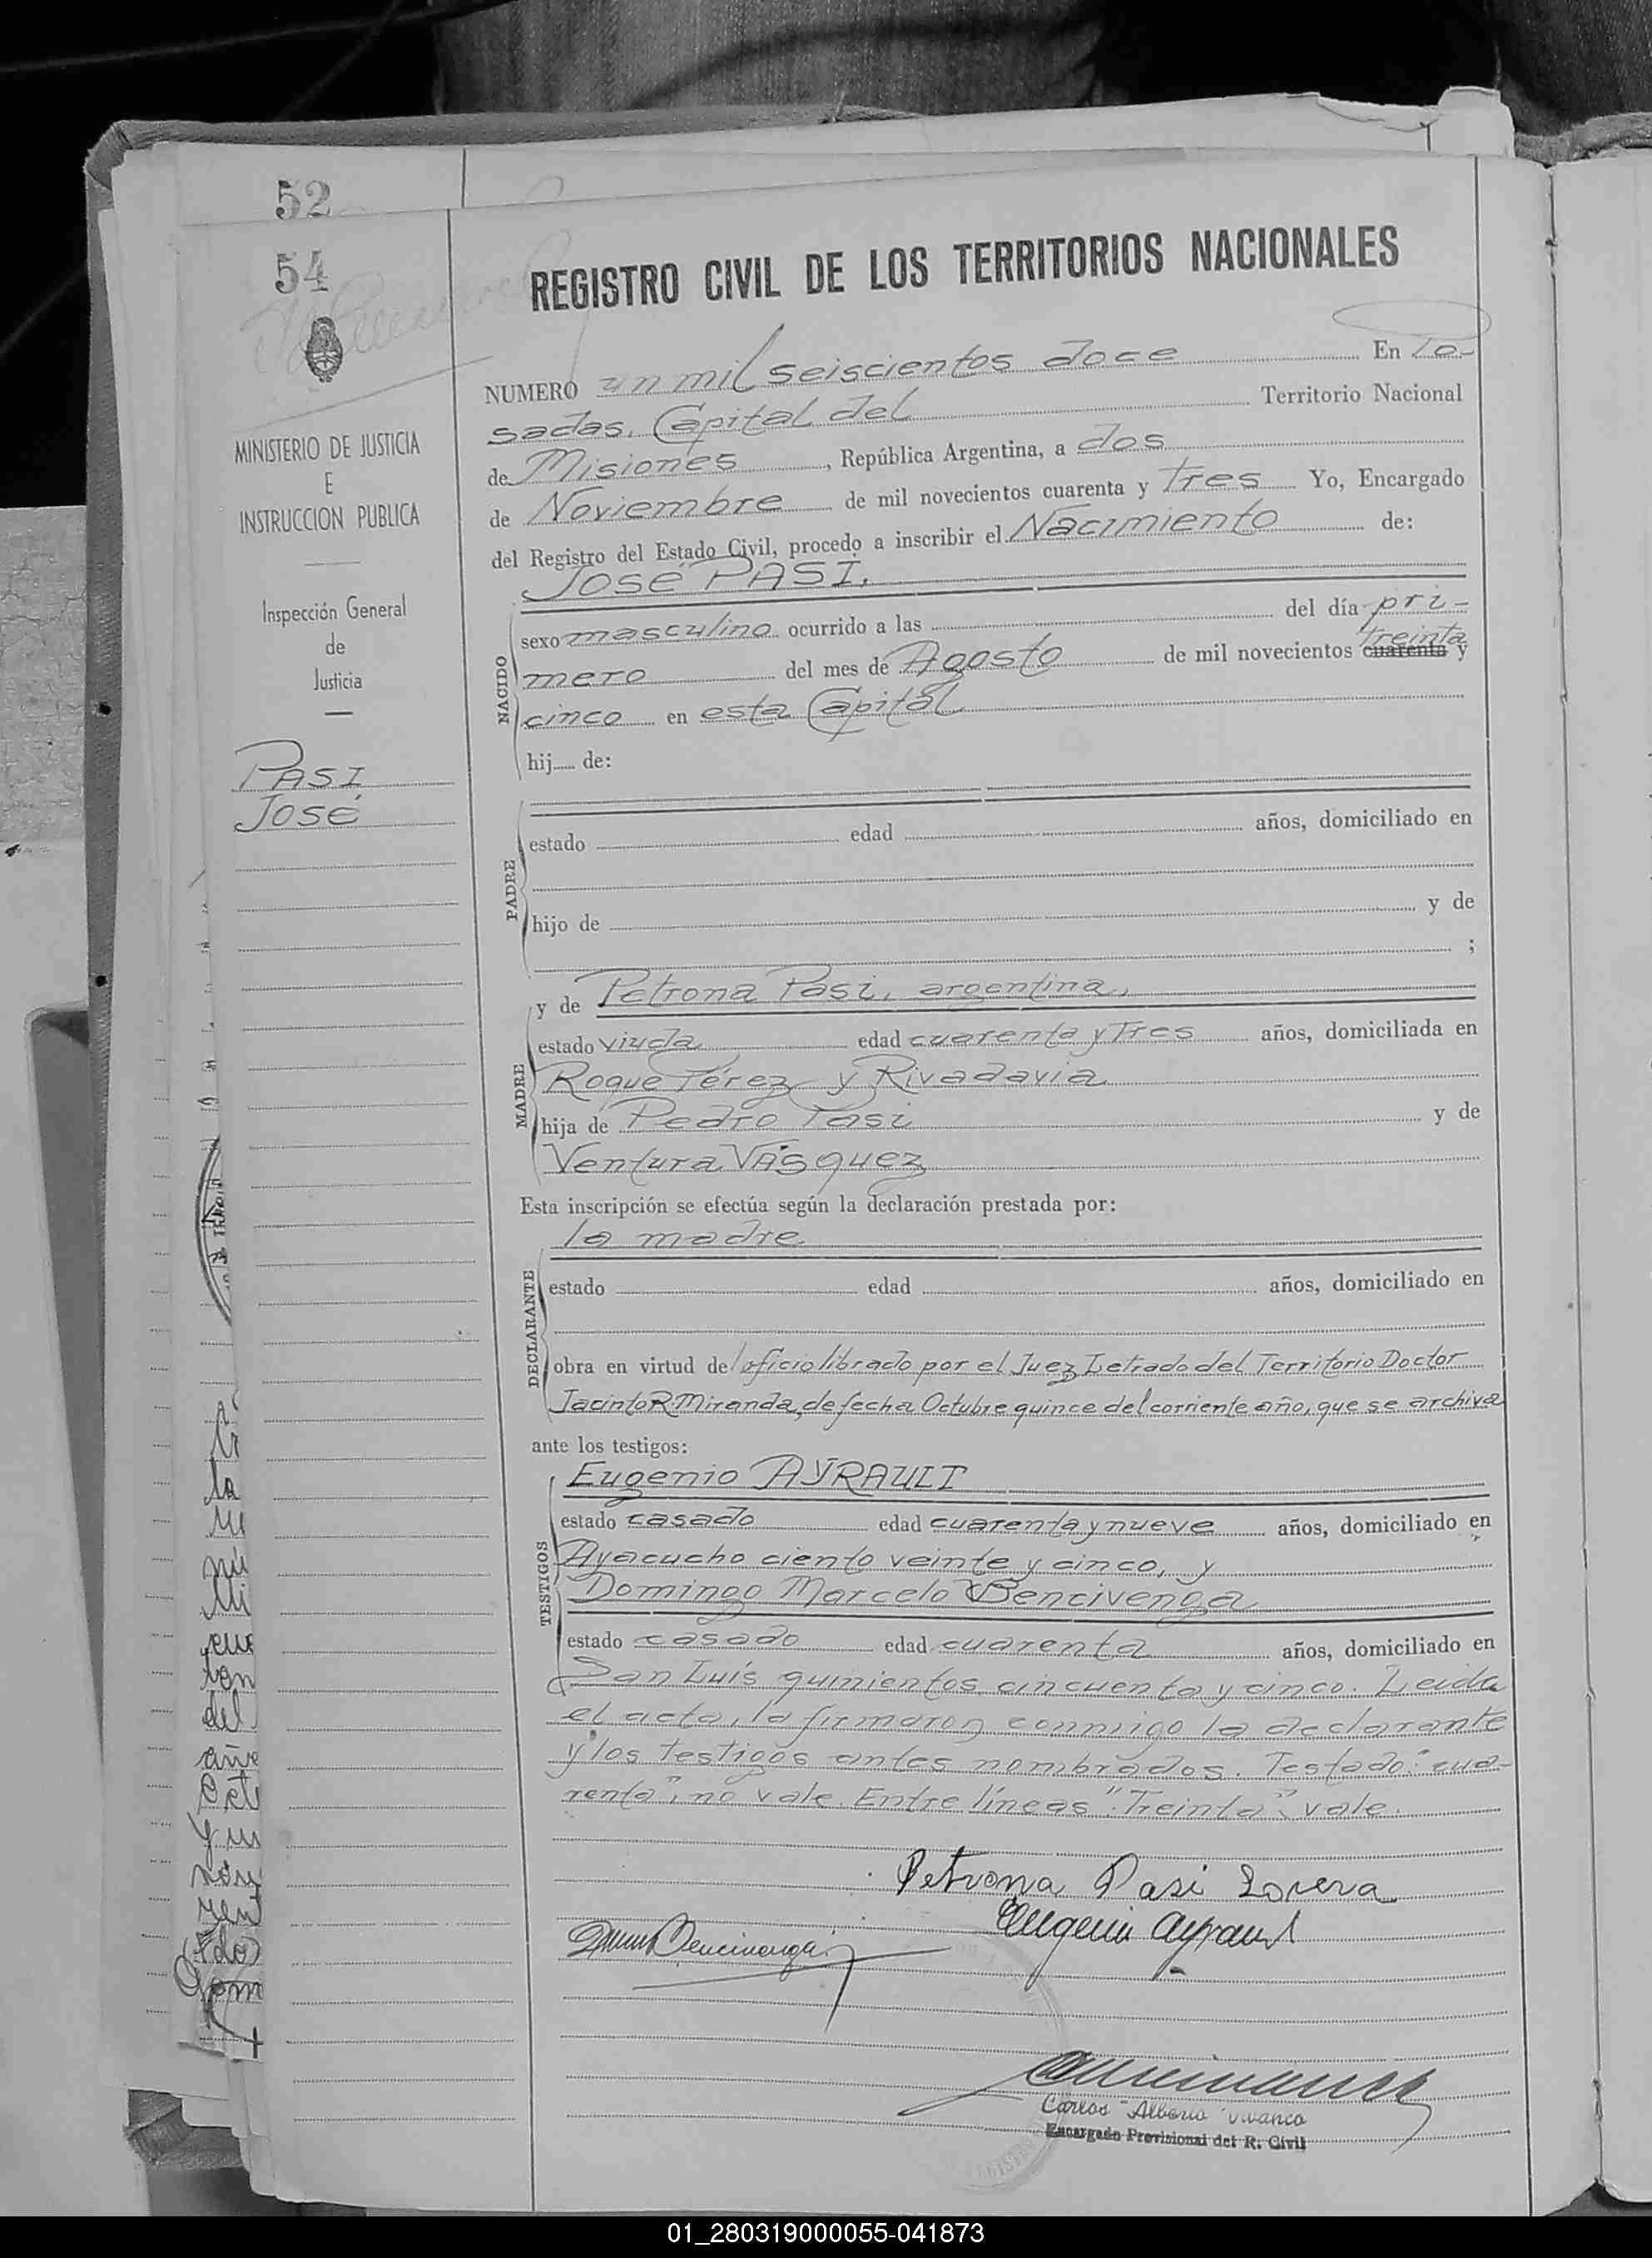 52
54
REGISTRO CIVIL DE LOS TERRITORIOS NACIONALES
NUMERO un mil seiscientos doce En Po-
sadas, Capital del Territorio Nacional
de Misiones, República Argentina, a dos
de Noviembre de mil novecientos cuarenta y tres Yo, Encargado
del Registro del Estado Civil, procedo a inscribir el Nacimiento de:
José PASI.
MINISTERIO DE JUSTICIA
E
INSTRUCCION PUBLICA
Inspección General
de
Justicia
PASI
JOSÉ
NACIDO
sexo masculino ocurrido a las del día pri-
treinta
mero del mes de Agosto de mil novecientos cuarenta y
cinco en esta Capital
hij de:
PADRE
estado edad años, domiciliado en
hijo de y de
;
MADRE
y de Petrona Pasi, argentina,
estado viuda edad cuarenta y tres años, domiciliada en
Roque Pérez y Rivadavia
hija de Pedro Pasi y de
Ventura VÁSquez
Esta inscripción se efectúa según la declaración prestada por:
la madre
DECLARANTE
estado edad años, domiciliado en
obra en virtud del oficio librado por el Juez Letrado del Territorio Doctor
Jacinto R. Miranda, de fecha Octubre quince del corriente año, que se archiva
ante los testigos:
TESTIGOS
Eugenio AYRAULT
estado casado edad cuarenta y nueve años, domiciliado en
Ayacucho ciento veinte y cinco, y
Domingo Marcelo Bencivenga
estado casado edad cuarenta años, domiciliado en
San Luís quinientos cincuenta y cinco. Leida
el acta, la firmaron conmigo la declarante
y los testigos antes nombrados. Testado: "cua-
renta", no vale. Entre líneas "Treinta", vale.
Petrona Pasi Lovera
Eugenio Ayrault
Bencivenga
Carlos Alberto Vivanco
Encargado Provisional del R. Civil
la
del
01_280319000055-041873